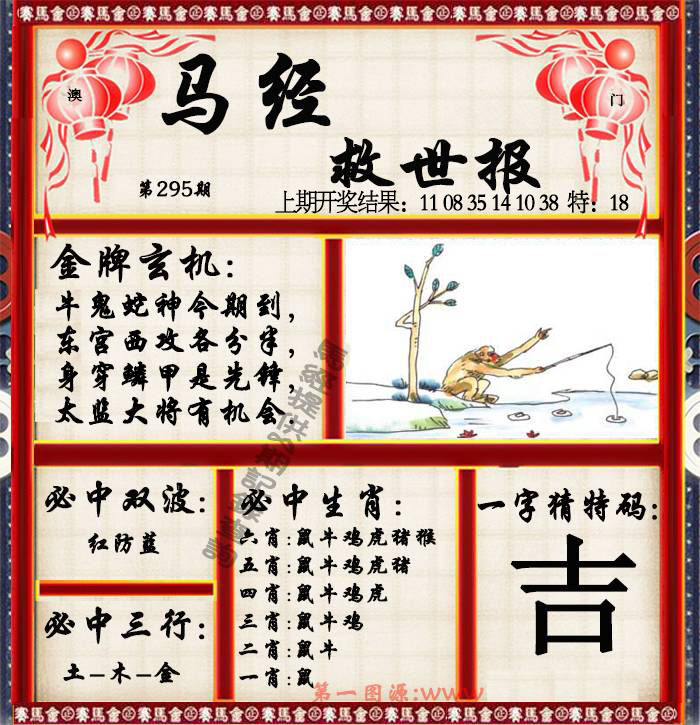 賽馬會金賽馬會金賽馬會金賽馬會金賽馬會金賽馬會金賽馬會金賽馬會
澳
门
马经
救世报
第295期
上期开奖结果：11 08 35 14 10 38 特：18
金牌玄机：
牛鬼蛇神今期到，
东宫西攻各分半，
身穿鳞甲是先锋，
太监大将有机会.
必中双波：
红防蓝
必中三行：
土-木-金
必中生肖：
六肖:鼠牛鸡虎猪猴
五肖:鼠牛鸡虎猪
四肖:鼠牛鸡虎
三肖:鼠牛鸡
二肖:鼠牛
一肖:鼠
一字猜特码：
吉
第一图源:www